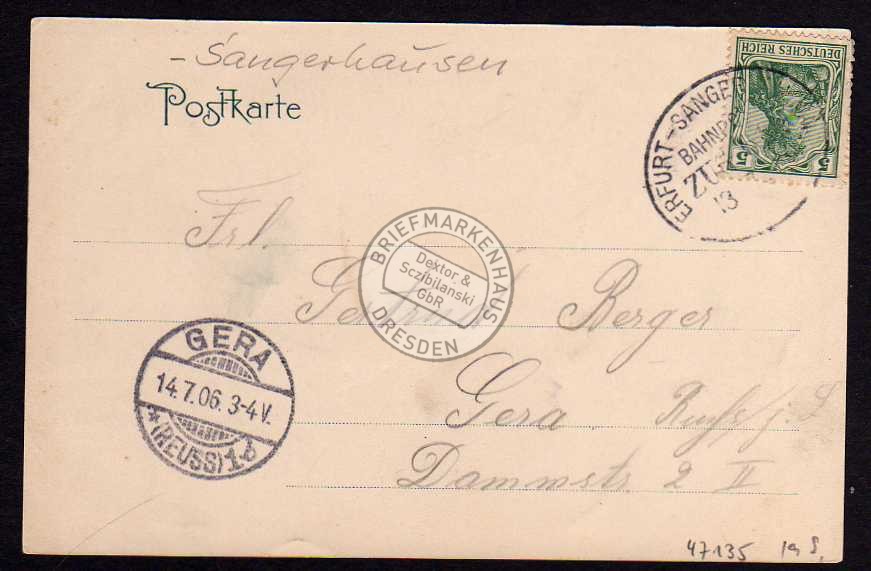 -Sangerhausen
Postkarte
DEUTSCHES REICH
5 5
ERFURT-SANGE
BAHNP
ZU
13
Frl.
Gertrud Berger
Gera
Dammstr 2 II
BRIEFMARKENHAUS
Dextor &
Sczibilanski
GbR
DRESDEN
GERA
14.7.06. 3-4 V.
* (REUSS) 1 b
47135